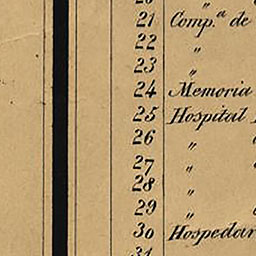 21 Comp.ª de
22 "
23 "
24 Memoria
25 Hospital
26 "
27 "
28 "
29 "
30
31